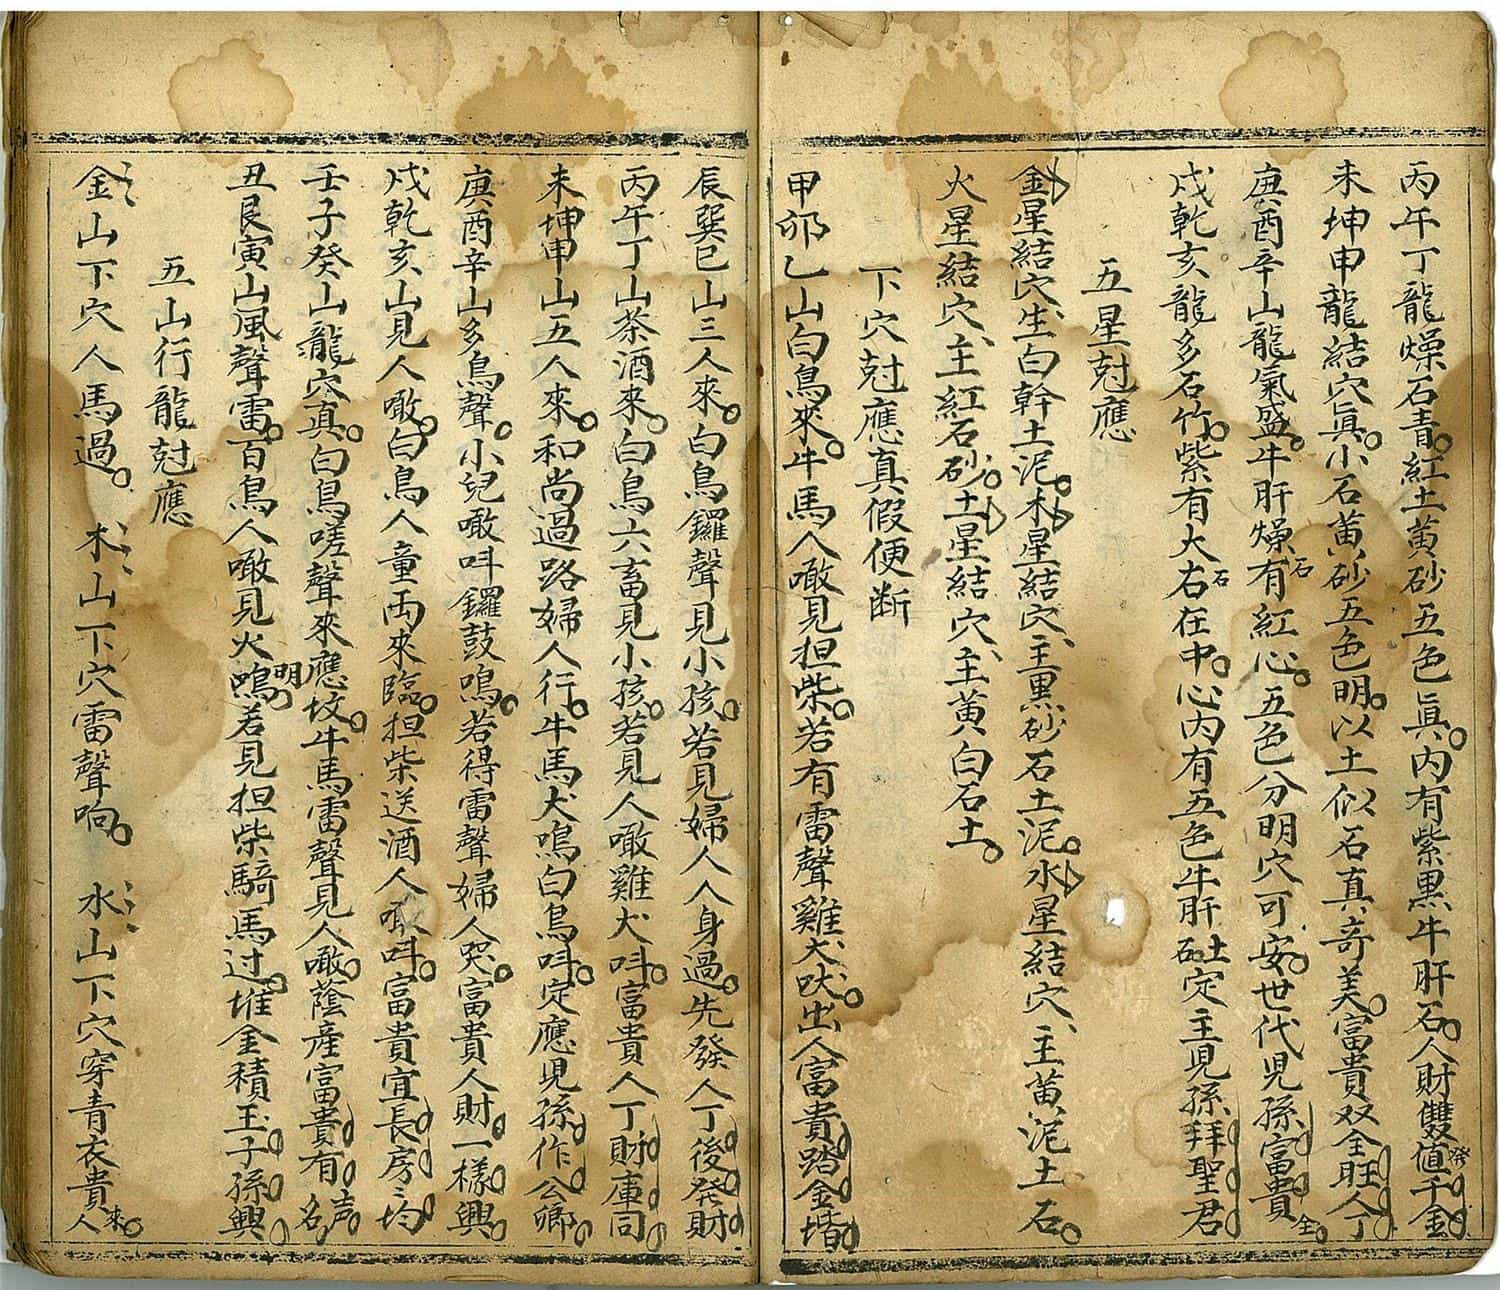 丙午丁龍燥石青紅土黃砂五色眞內有紫黑牛肝石人財雙發值千金
未坤申龍結穴眞小石黃砂五色明以土似石真奇美富貴双全旺人丁
庚酉辛山龍氣盛牛肝燥石有紅心五色分明穴可安世代児孫富貴全
戌乾亥龍多石竹紫有大石在中心內有五色牛肝土砂定主児孫拜聖君
五星尅應
金星結穴生白幹土泥木星結穴主黑砂石土泥水星結穴主黃泥土石
火星結穴主紅石砂土星結穴主黃白石土
下穴尅應真假便断
甲卯乙山白鳥來牛馬人噉見担柴若有雷聲雞犬吠出人富貴踏金堦
辰巽巳山三人來白鳥鑼聲見小孩若見婦人人身過先發人丁後発財
丙午丁山茶酒來白鳥六畜見小孩若見人噉雞犬呌富貴人丁財庫同
未坤申山五人來和尚過路婦人行牛馬犬鳴白鳥呌定應児孫作公卿
庚酉辛山多鳥聲小兒噉呌鑼鼓鳴若得雷聲婦人哭富貴人財一樣興
戌乾亥山見人噉白鳥人童両來臨担柴送酒人噉呌富貴宜長房〻均
壬子癸山龍穴真白鳥嗟聲來應坟牛馬雷聲見人噉蔭産富貴有声名
丑艮寅山風聲雷百鳥人噉見火鳴明若見担柴騎馬过堆金積玉子孫興
五山行龍尅應
金山下穴人馬過 木山下穴雷聲响 水山下穴穿青衣貴人來